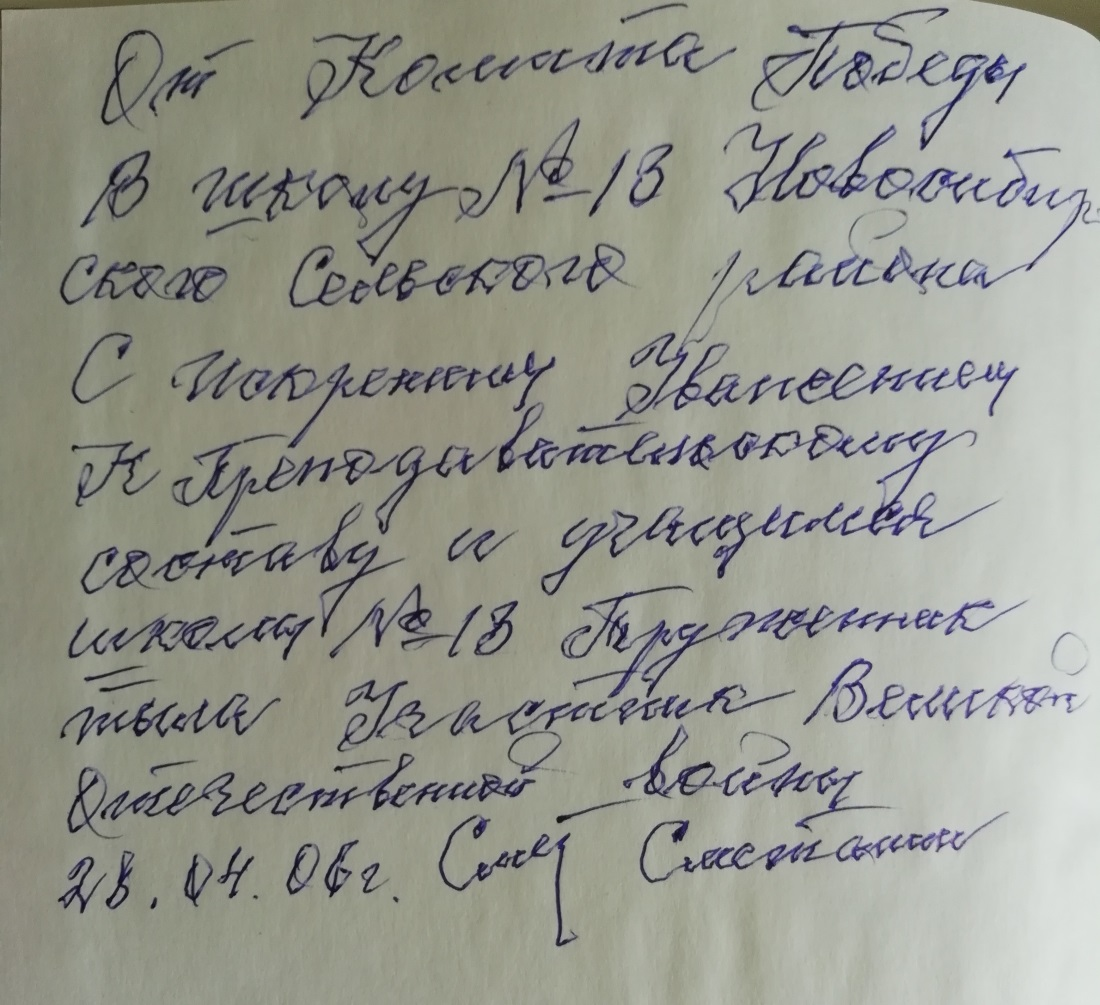 От Комитта Победы
В школу № 13 Новосибир-
ского Сельского района
С Искренним Уважением
К Преподавательскому
составу и учащимся
школы № 13 Труженник
тыла Участник Великой
Отечественной войны
28.04.06г. Сметанин